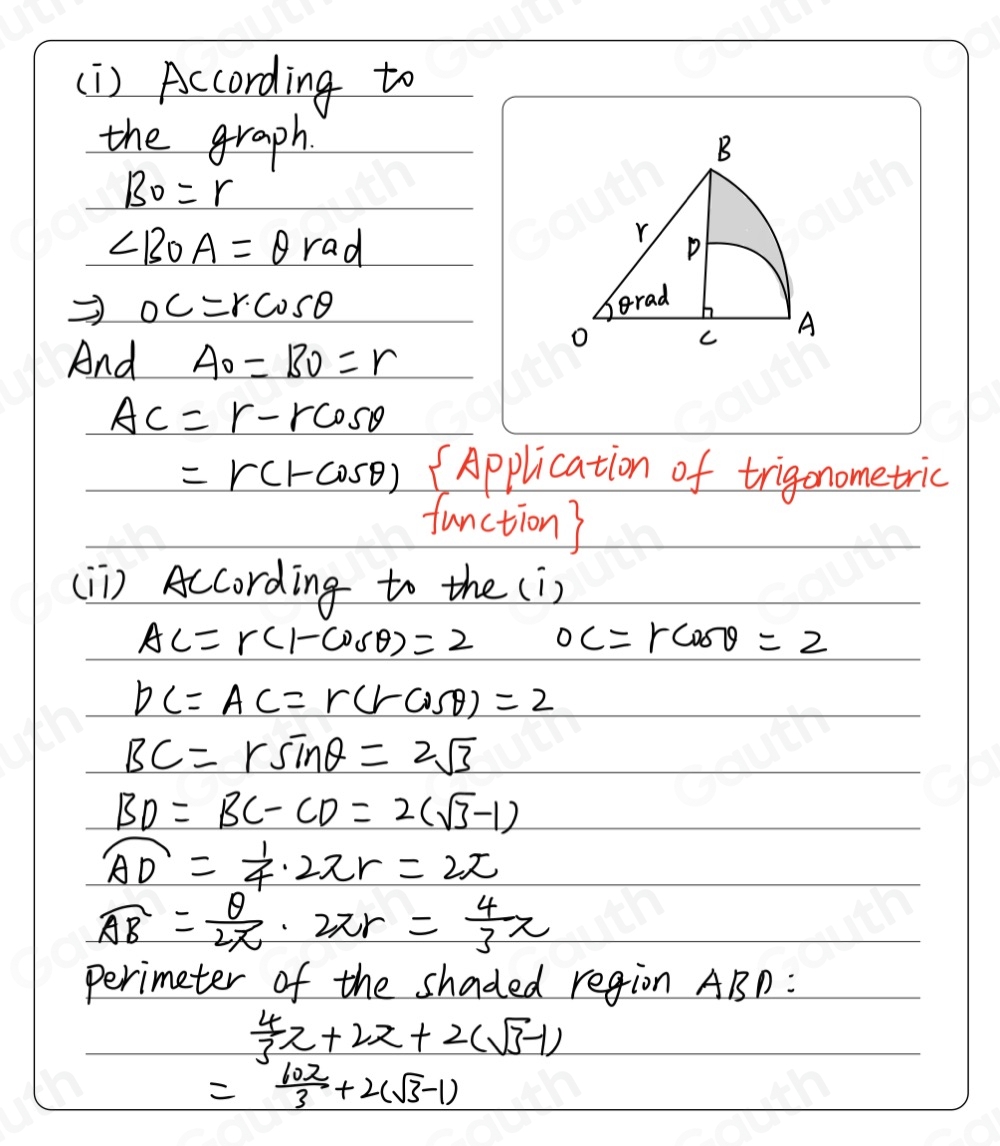 (i) According to
the graph.
BO = r
∠BOA = θ rad
⇒ OC = r·cosθ
And AO = BO = r
AC = r - rcosθ
= r(1-cosθ) {Application of trigonometric
function}
B
r
D
θrad
O
C
A
(ii) According to the (i)
AC = r(1-cosθ) = 2 OC = rcosθ = 2
DC = AC = r(1-cosθ) = 2
BC = rsinθ = 2√3
BD = BC - CD = 2(√3-1)
AD = 1/4 · 2πr = 2π
AB = θ/2π · 2πr = 4/3 π
perimeter of the shaded region ABD:
4/3 π + 2π + 2(√3-1)
= 10π/3 + 2(√3-1)
Gauth